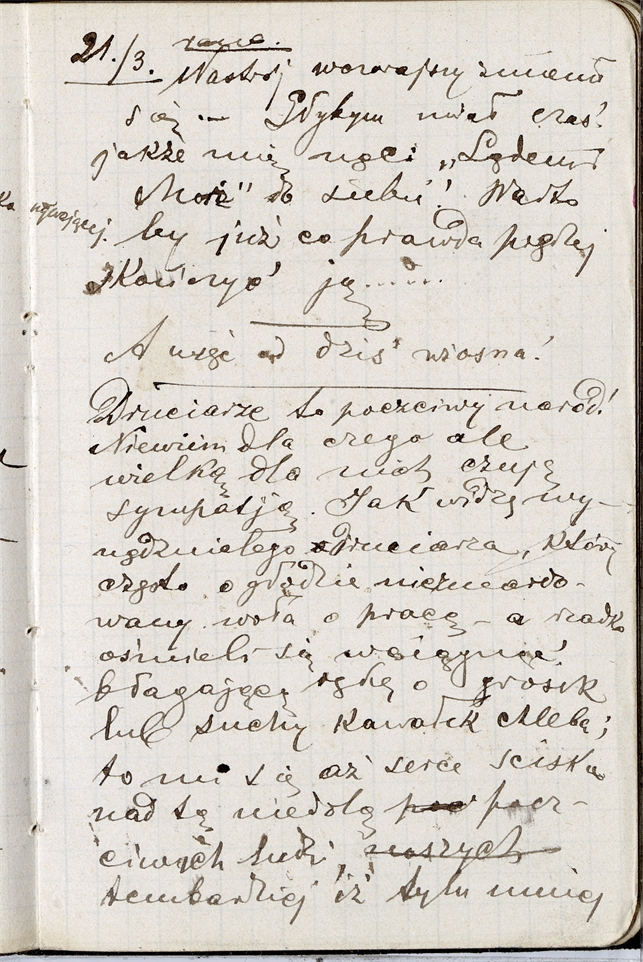 21./3. rano.
Nastrój wczorajszy zmienił
się — Gdybym miał czas!
jakże mię nęci „Lądem i
Morze" do siebie! Warto
by już co prawda prędzej
skończyć ją......
A więc od dziś wiosna!
Druciarze to poczciwy naród!
Niewiem dla czego ale
wielką dla nich czuję
sympatją. Jak widzę wy-
nędzniałego druciarza, który
często o głodzie niezmordo-
wany woła o pracę – a rzadko
ośmieli się wyciągnąć
błagającą rękę o grosik
lub suchy kawałek chleba;
to mi się aż serce ściska
nad tą niedolą pocz-
ciwych ludzi, naszych
tembardziej iż tylu mniej